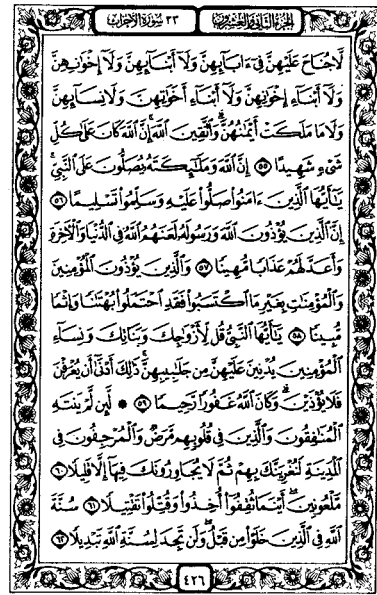 الجزء الثاني والعشرون ٣٣ سورة الأحزاب
لَّا جُنَاحَ عَلَيْهِنَّ فِىٓ ءَابَآئِهِنَّ وَلَآ أَبْنَآئِهِنَّ وَلَآ إِخْوَٰنِهِنَّ
وَلَآ أَبْنَآءِ إِخْوَٰنِهِنَّ وَلَآ أَبْنَآءِ أَخَوَٰتِهِنَّ وَلَا نِسَآئِهِنَّ
وَلَا مَا مَلَكَتْ أَيْمَٰنُهُنَّ ۗ وَٱتَّقِينَ ٱللَّهَ ۚ إِنَّ ٱللَّهَ كَانَ عَلَىٰ كُلِّ
شَىْءٍ شَهِيدًا ٥٥ إِنَّ ٱللَّهَ وَمَلَٰٓئِكَتَهُۥ يُصَلُّونَ عَلَى ٱلنَّبِىِّ ۚ
يَٰٓأَيُّهَا ٱلَّذِينَ ءَامَنُوا۟ صَلُّوا۟ عَلَيْهِ وَسَلِّمُوا۟ تَسْلِيمًا ٥٦
إِنَّ ٱلَّذِينَ يُؤْذُونَ ٱللَّهَ وَرَسُولَهُۥ لَعَنَهُمُ ٱللَّهُ فِى ٱلدُّنْيَا وَٱلْءَاخِرَةِ
وَأَعَدَّ لَهُمْ عَذَابًا مُّهِينًا ٥٧ وَٱلَّذِينَ يُؤْذُونَ ٱلْمُؤْمِنِينَ
وَٱلْمُؤْمِنَٰتِ بِغَيْرِ مَا ٱكْتَسَبُوا۟ فَقَدِ ٱحْتَمَلُوا۟ بُهْتَٰنًا وَإِثْمًا
مُّبِينًا ٥٨ يَٰٓأَيُّهَا ٱلنَّبِىُّ قُل لِّأَزْوَٰجِكَ وَبَنَاتِكَ وَنِسَآءِ
ٱلْمُؤْمِنِينَ يُدْنِينَ عَلَيْهِنَّ مِن جَلَٰبِيبِهِنَّ ۚ ذَٰلِكَ أَدْنَىٰٓ أَن يُعْرَفْنَ
فَلَا يُؤْذَيْنَ ۗ وَكَانَ ٱللَّهُ غَفُورًا رَّحِيمًا ٥٩ ۞ لَّئِن لَّمْ يَنتَهِ
ٱلْمُنَٰفِقُونَ وَٱلَّذِينَ فِى قُلُوبِهِم مَّرَضٌ وَٱلْمُرْجِفُونَ فِى
ٱلْمَدِينَةِ لَنُغْرِيَنَّكَ بِهِمْ ثُمَّ لَا يُجَاوِرُونَكَ فِيهَآ إِلَّا قَلِيلًا ٦٠
مَّلْعُونِينَ ۖ أَيْنَمَا ثُقِفُوٓا۟ أُخِذُوا۟ وَقُتِّلُوا۟ تَقْتِيلًا ٦١ سُنَّةَ
ٱللَّهِ فِى ٱلَّذِينَ خَلَوْا۟ مِن قَبْلُ ۖ وَلَن تَجِدَ لِسُنَّةِ ٱللَّهِ تَبْدِيلًا ٦٢
٤٢٦